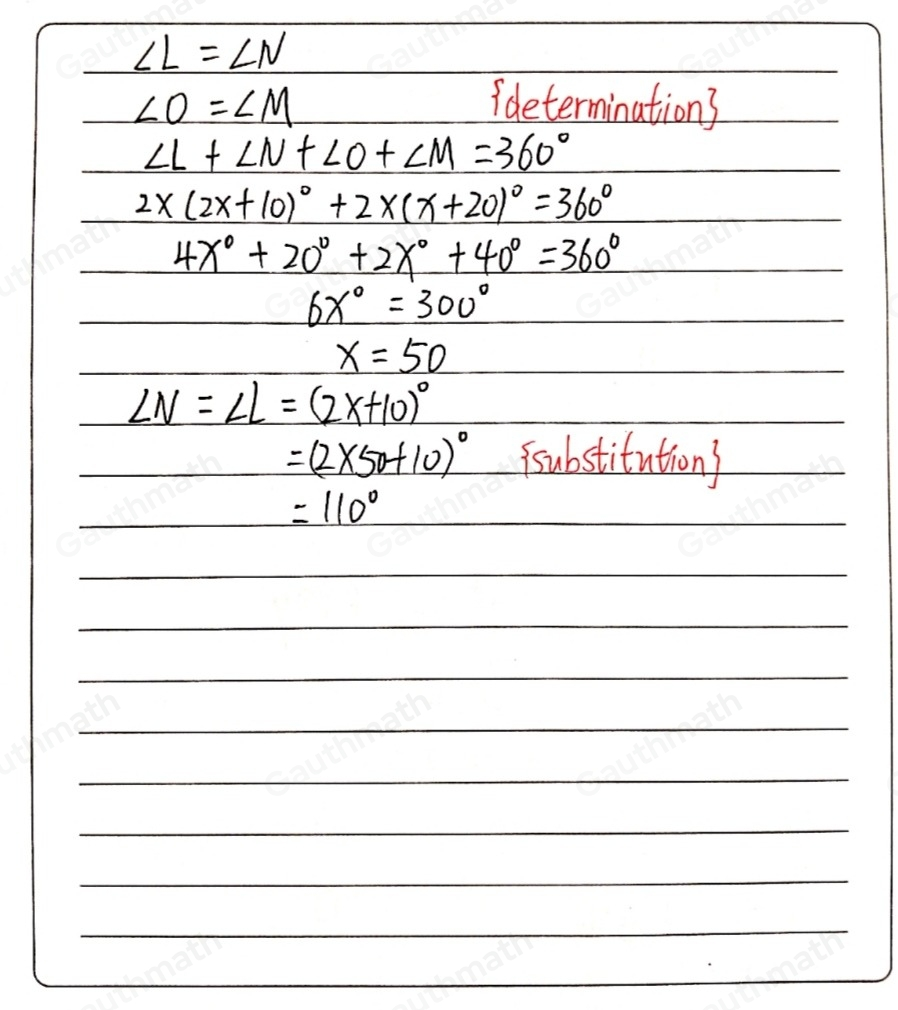 ∠L = ∠N
∠O = ∠M {determination}
∠L + ∠N + ∠O + ∠M = 360°
2×(2x+10)° + 2×(x+20)° = 360°
4x° + 20° + 2x° + 40° = 360°
6x° = 300°
x = 50
∠N = ∠L = (2x+10)°
= (2×50+10)° {substitution}
= 110°